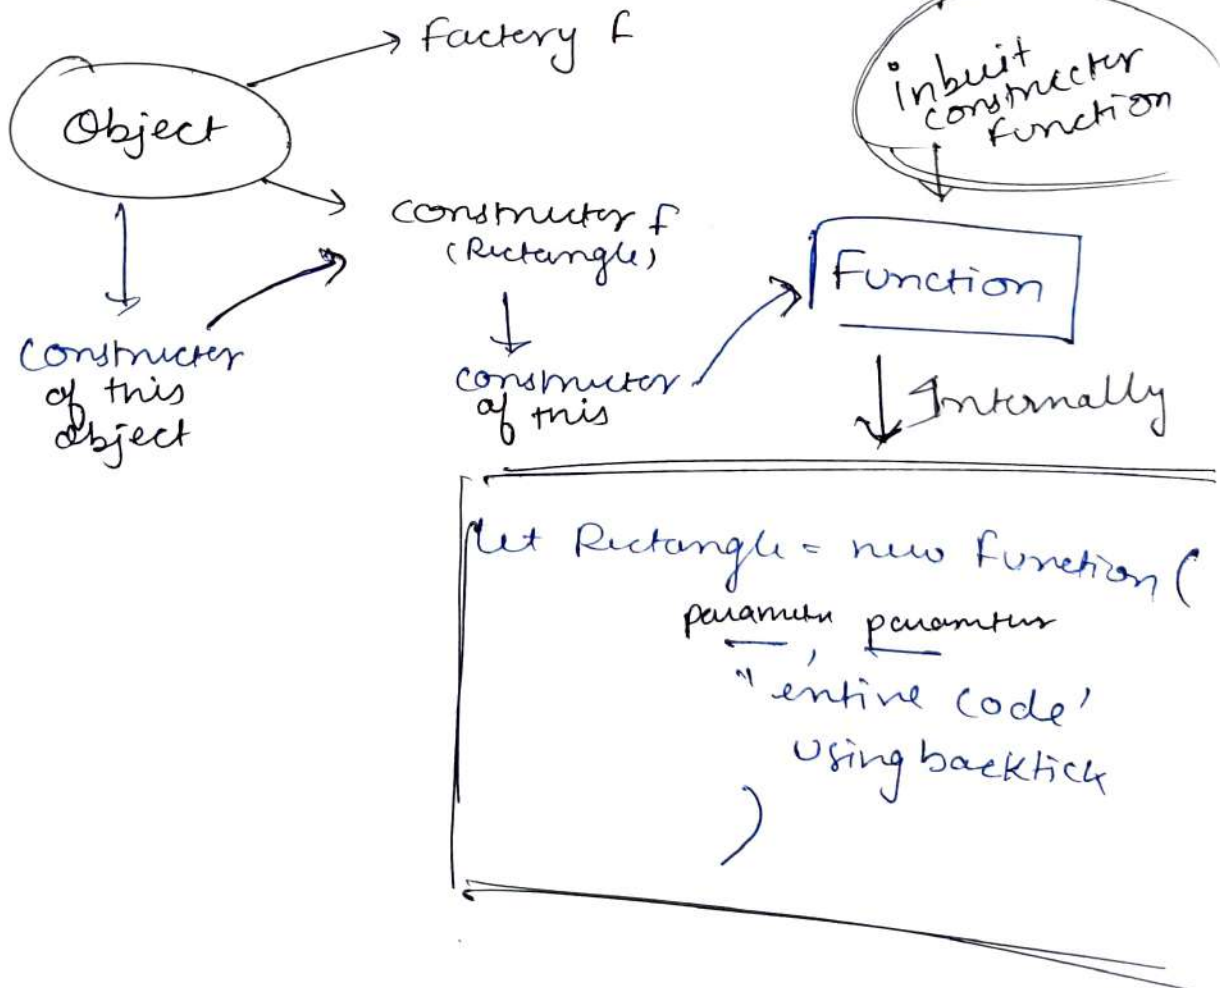 factory f
Object
inbuit
constructer
function
constructer f
(Rectangle)
Function
constructer
of this
object
constructor
of this
Internally
let Rectangle = new Function (
parameter parameter
,
" entire code'
using backtick
)